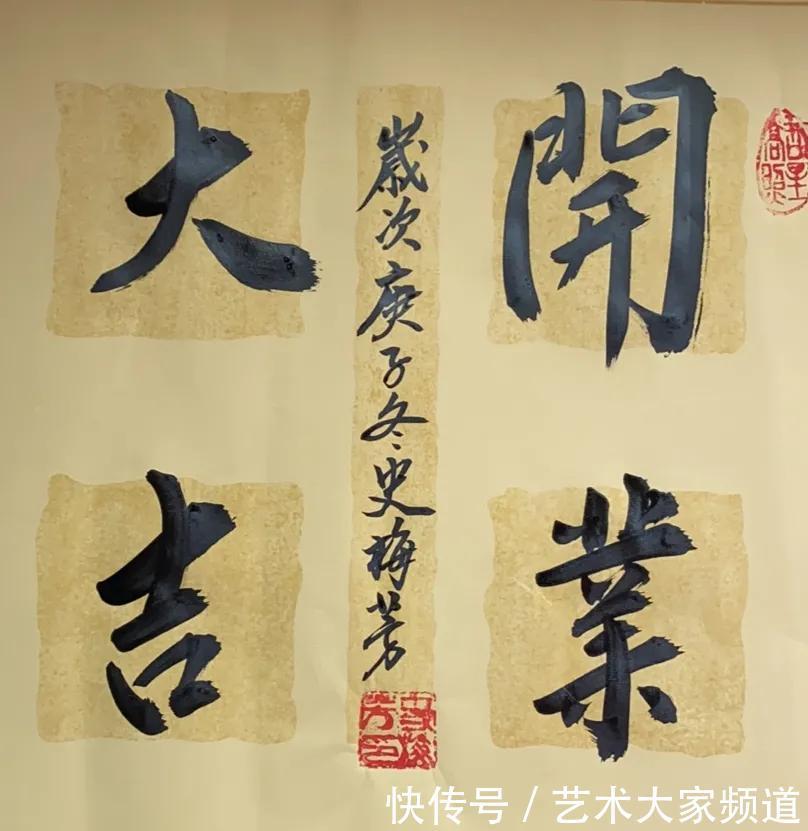 開業
大吉
歲次庚子冬史梅芳
史梅芳印
快传号 / 艺术大家频道